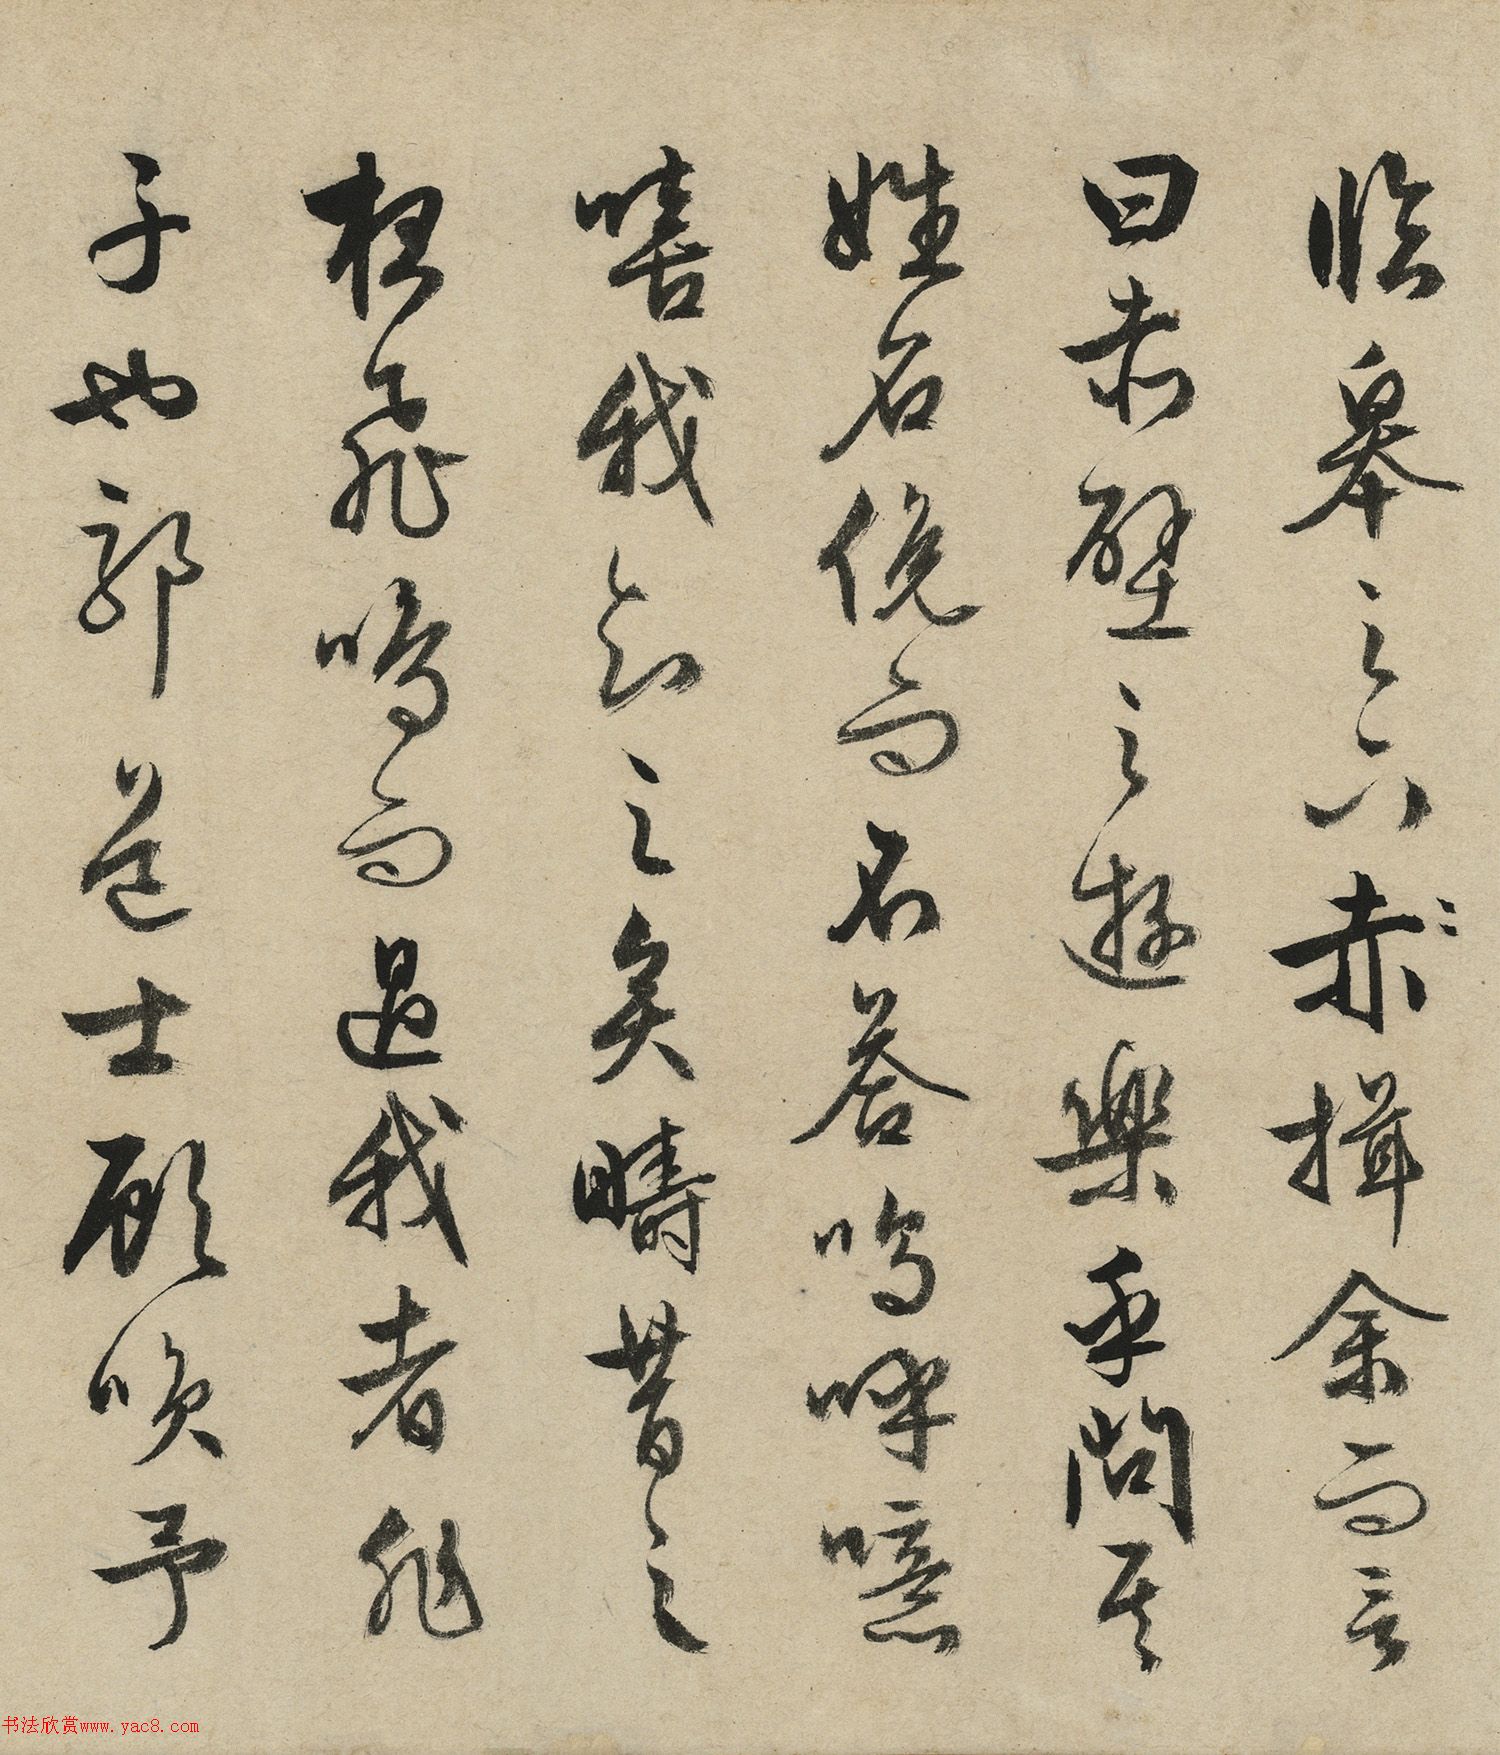 臨皋之下赤揖余而言
曰赤壁之遊樂乎問其
姓名俛而不答嗚呼噫
嘻我知之矣疇昔之
夜飛鳴而過我者非
子也耶道士顧喚予
书法欣赏www.yac8.com